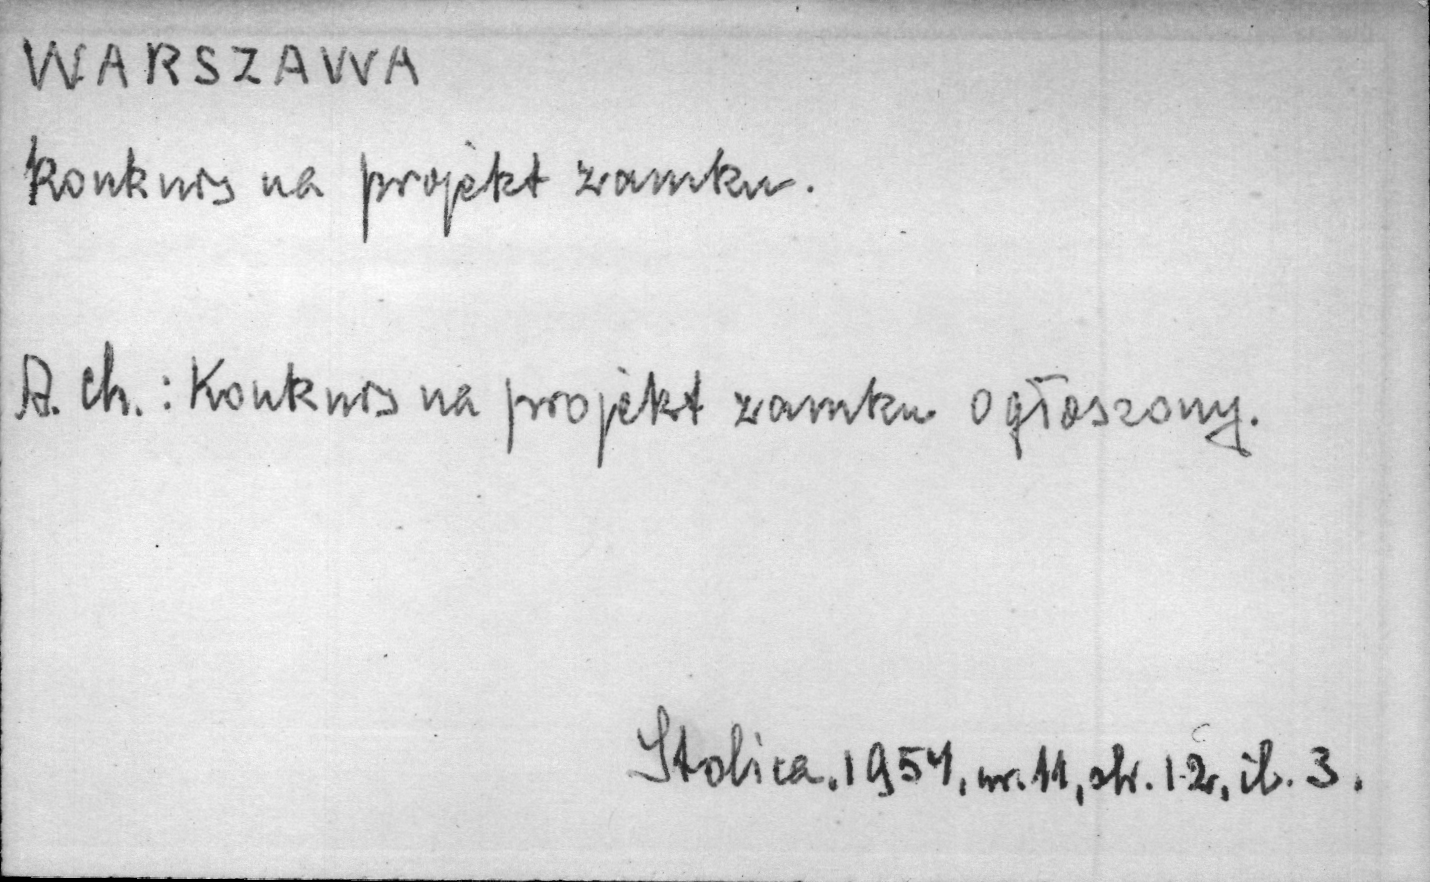 WARSZAWA
Konkurs na projekt zamku.
A. Ch.: Konkurs na projekt zamku ogłoszony.
Stolica. 1954, nr. 11, str. 1-2, il. 3.